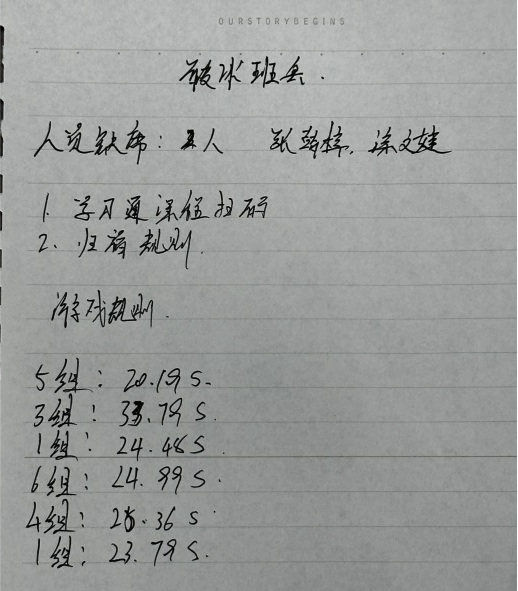 OURSTORYBEGINS
破冰班会.
人员缺席: 2人 张梓, 徐文婕
1. 学习通课程扫码
2. 归寝规则.
游戏规则.
5组: 20.19 s.
3组: 33.79 s.
1组: 24.48 s
6组: 24.99 s.
4组: 28.36 s.
1组: 23.79 s.